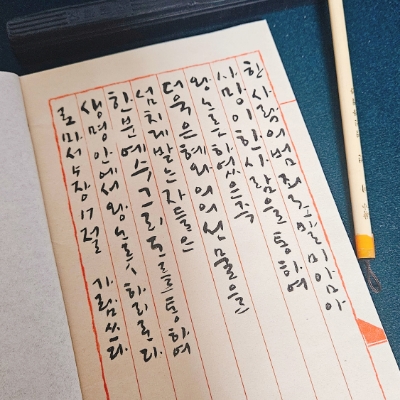 한 사람의 범죄로 말미암아
사망이 한 사람을 통하여
왕노릇 하였은즉
더욱 은혜와 의의 선물을
넘치게 받는 자들은
한 분 예수 그리스도를 통하여
생명 안에서 왕노릇 하리로다
로마서 5장 17절 쓰다